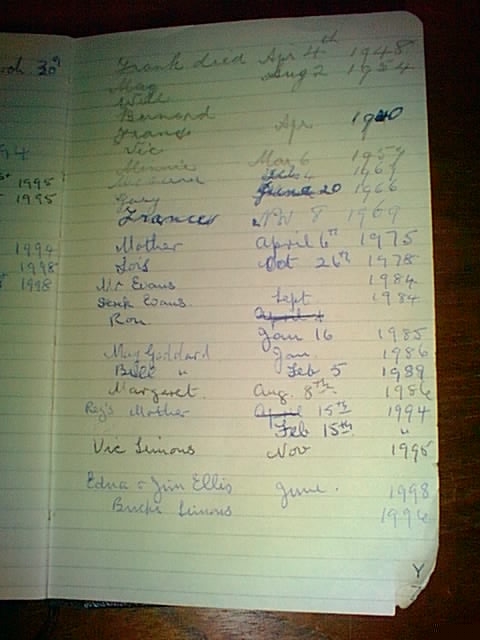 30th
94
1995
1995
1994
1998
1998
Frank died Apr 4th 1948
May Aug 2 1954
Will
Bernard
Frank Apr 1940
Vic
Minnie Mar 6 1957
Feb 4 1969
Gary June 20 1966
Frances Nov 8 1969
Mother April 6th 1975
Lois Oct 26th 1978
Mr Evans 1984
Evans Sept 1984
Ron April 4
Jan 16 1985
May Goddard Jan. 1986
Bill " Feb 5 1989
Margaret. Aug. 8TH 1986
Reg's Mother April 15TH 1994
Feb 15th "
Vic Simons Nov 1995
Edna & Jim Ellis June. 1998
Simons 1996
Y